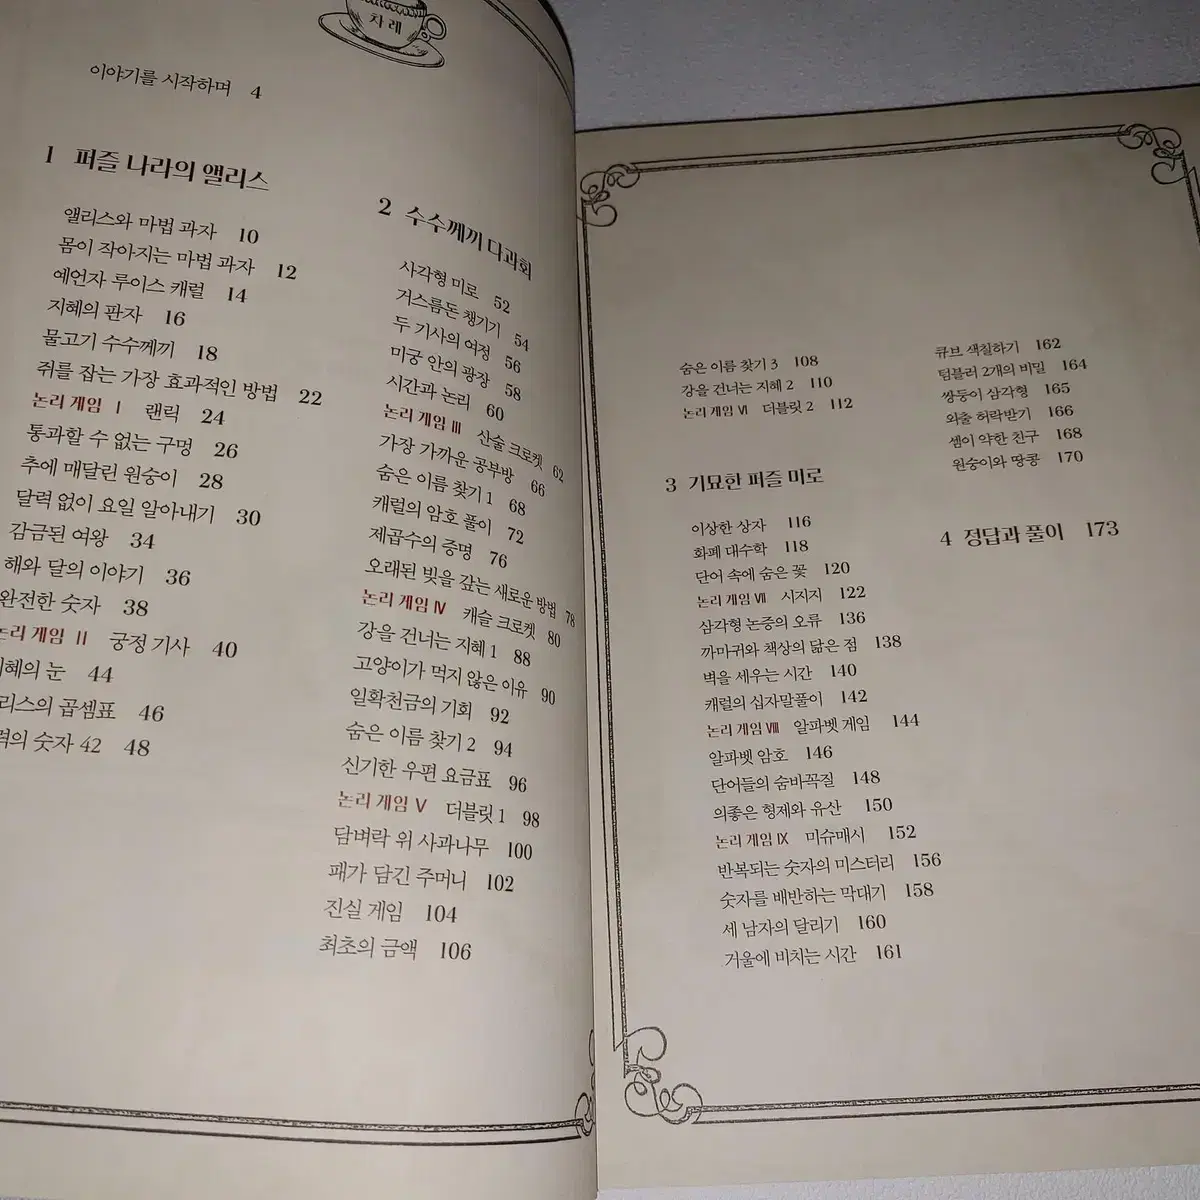 차례
이야기를 시작하며 4
1 퍼즐 나라의 앨리스
앨리스와 마법 과자 10
몸이 작아지는 마법 과자 12
예언자 루이스 캐럴 14
지혜의 판자 16
물고기 수수께끼 18
쥐를 잡는 가장 효과적인 방법 22
논리 게임 Ⅰ 랜릭 24
통과할 수 없는 구멍 26
추에 매달린 원숭이 28
달력 없이 요일 알아내기 30
감금된 여왕 34
해와 달의 이야기 36
완전한 숫자 38
논리 게임 Ⅱ 궁정 기사 40
혜의 눈 44
리스의 곱셈표 46
력의 숫자 42 48
2 수수께끼 다과회
사각형 미로 52
거스름돈 챙기기 54
두 기사의 여정 56
미궁 안의 광장 58
시간과 논리 60
논리 게임 Ⅲ 산술 크로켓 62
가장 가까운 공부방 66
숨은 이름 찾기 1 68
캐럴의 암호 풀이 72
제곱수의 증명 76
오래된 빚을 갚는 새로운 방법 78
논리 게임 Ⅳ 캐슬 크로켓 80
강을 건너는 지혜 1 88
고양이가 먹지 않은 이유 90
일확천금의 기회 92
숨은 이름 찾기 2 94
신기한 우편 요금표 96
논리 게임 Ⅴ 더블릿 1 98
담벼락 위 사과나무 100
패가 담긴 주머니 102
진실 게임 104
최초의 금액 106
숨은 이름 찾기 3 108
강을 건너는 지혜 2 110
논리 게임 Ⅵ 더블릿 2 112
3 기묘한 퍼즐 미로
이상한 상자 116
화폐 대수학 118
단어 속에 숨은 꽃 120
논리 게임 Ⅶ 시지지 122
삼각형 논증의 오류 136
까마귀와 책상의 닮은 점 138
벽을 세우는 시간 140
캐럴의 십자말풀이 142
논리 게임 Ⅷ 알파벳 게임 144
알파벳 암호 146
단어들의 숨바꼭질 148
의좋은 형제와 유산 150
논리 게임 Ⅸ 미슈매시 152
반복되는 숫자의 미스터리 156
숫자를 배반하는 막대기 158
세 남자의 달리기 160
거울에 비치는 시간 161
큐브 색칠하기 162
텀블러 2개의 비밀 164
쌍둥이 삼각형 165
외출 허락받기 166
셈이 약한 친구 168
원숭이와 땅콩 170
4 정답과 풀이 173